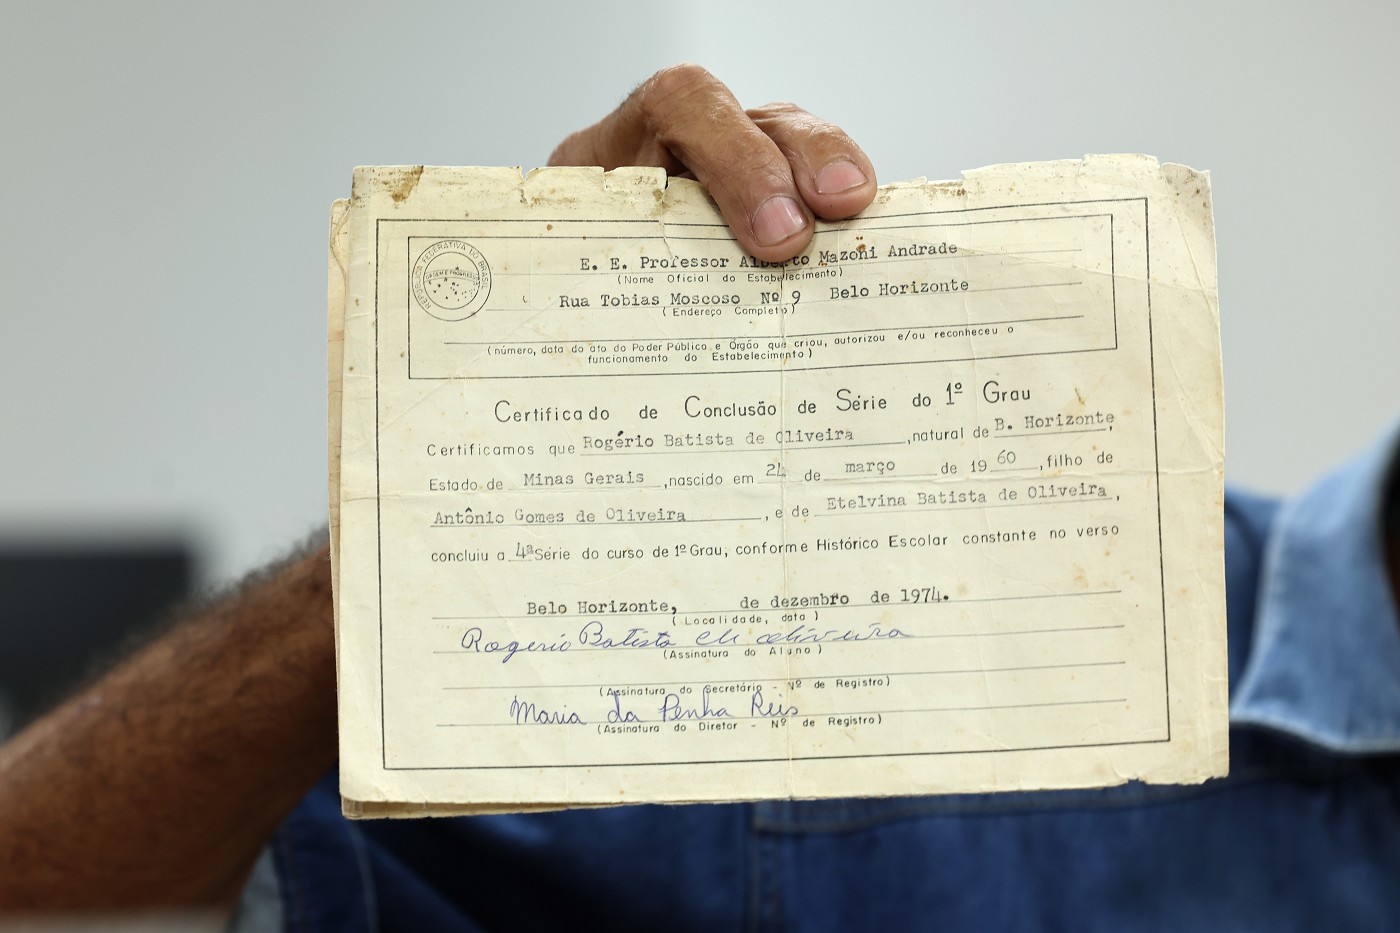 REPÚBLICA FEDERATIVA DO BRASIL
ORDEM E PROGRESSO
E. E. Professor Alberto Mazoni Andrade
(Nome Oficial do Estabelecimento)
Rua Tobias Moscoso Nº 9 Belo Horizonte
(Endereço Completo)
(número, data do ato do Poder Público e Órgão que criou, autorizou e/ou reconheceu o
funcionamento do Estabelecimento)
Certificado de Conclusão de Série do 1º Grau
Certificamos que Rogério Batista de Oliveira, natural de B. Horizonte,
Estado de Minas Gerais, nascido em 24 de março de 1960, filho de
Antônio Gomes de Oliveira, e de Etelvina Batista de Oliveira,
concluiu a 4ª Série do curso de 1º Grau, conforme Histórico Escolar constante no verso
Belo Horizonte, de dezembro de 1974.
(Localidade, data)
Rogerio Batista de oliveira
(Assinatura do Aluno)
(Assinatura do Secretário - Nº de Registro)
Maria da Penha Reis
(Assinatura do Diretor - Nº de Registro)